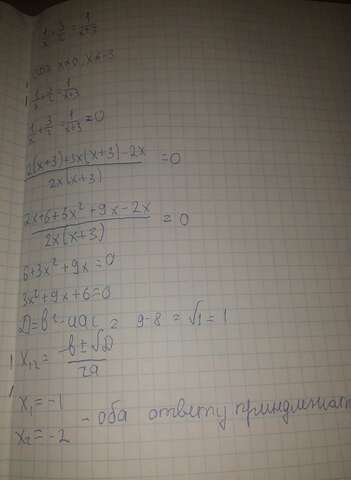 1/x + 3/2 = 1/(x+3)
ОДЗ x≠0, x≠-3
1/x + 3/2 = 1/(x+3)
1/x + 3/2 - 1/(x+3) = 0
(2(x+3)+3x(x+3)-2x)/(2x(x+3)) = 0
(2x+6+3x²+9x-2x)/(2x(x+3)) = 0
6+3x²+9x=0
3x²+9x+6=0
D=b²-4ac = 9-8 = √1 = 1
x₁,₂ = (-b±√D)/(2a)
x₁=-1
x₂=-2 - оба